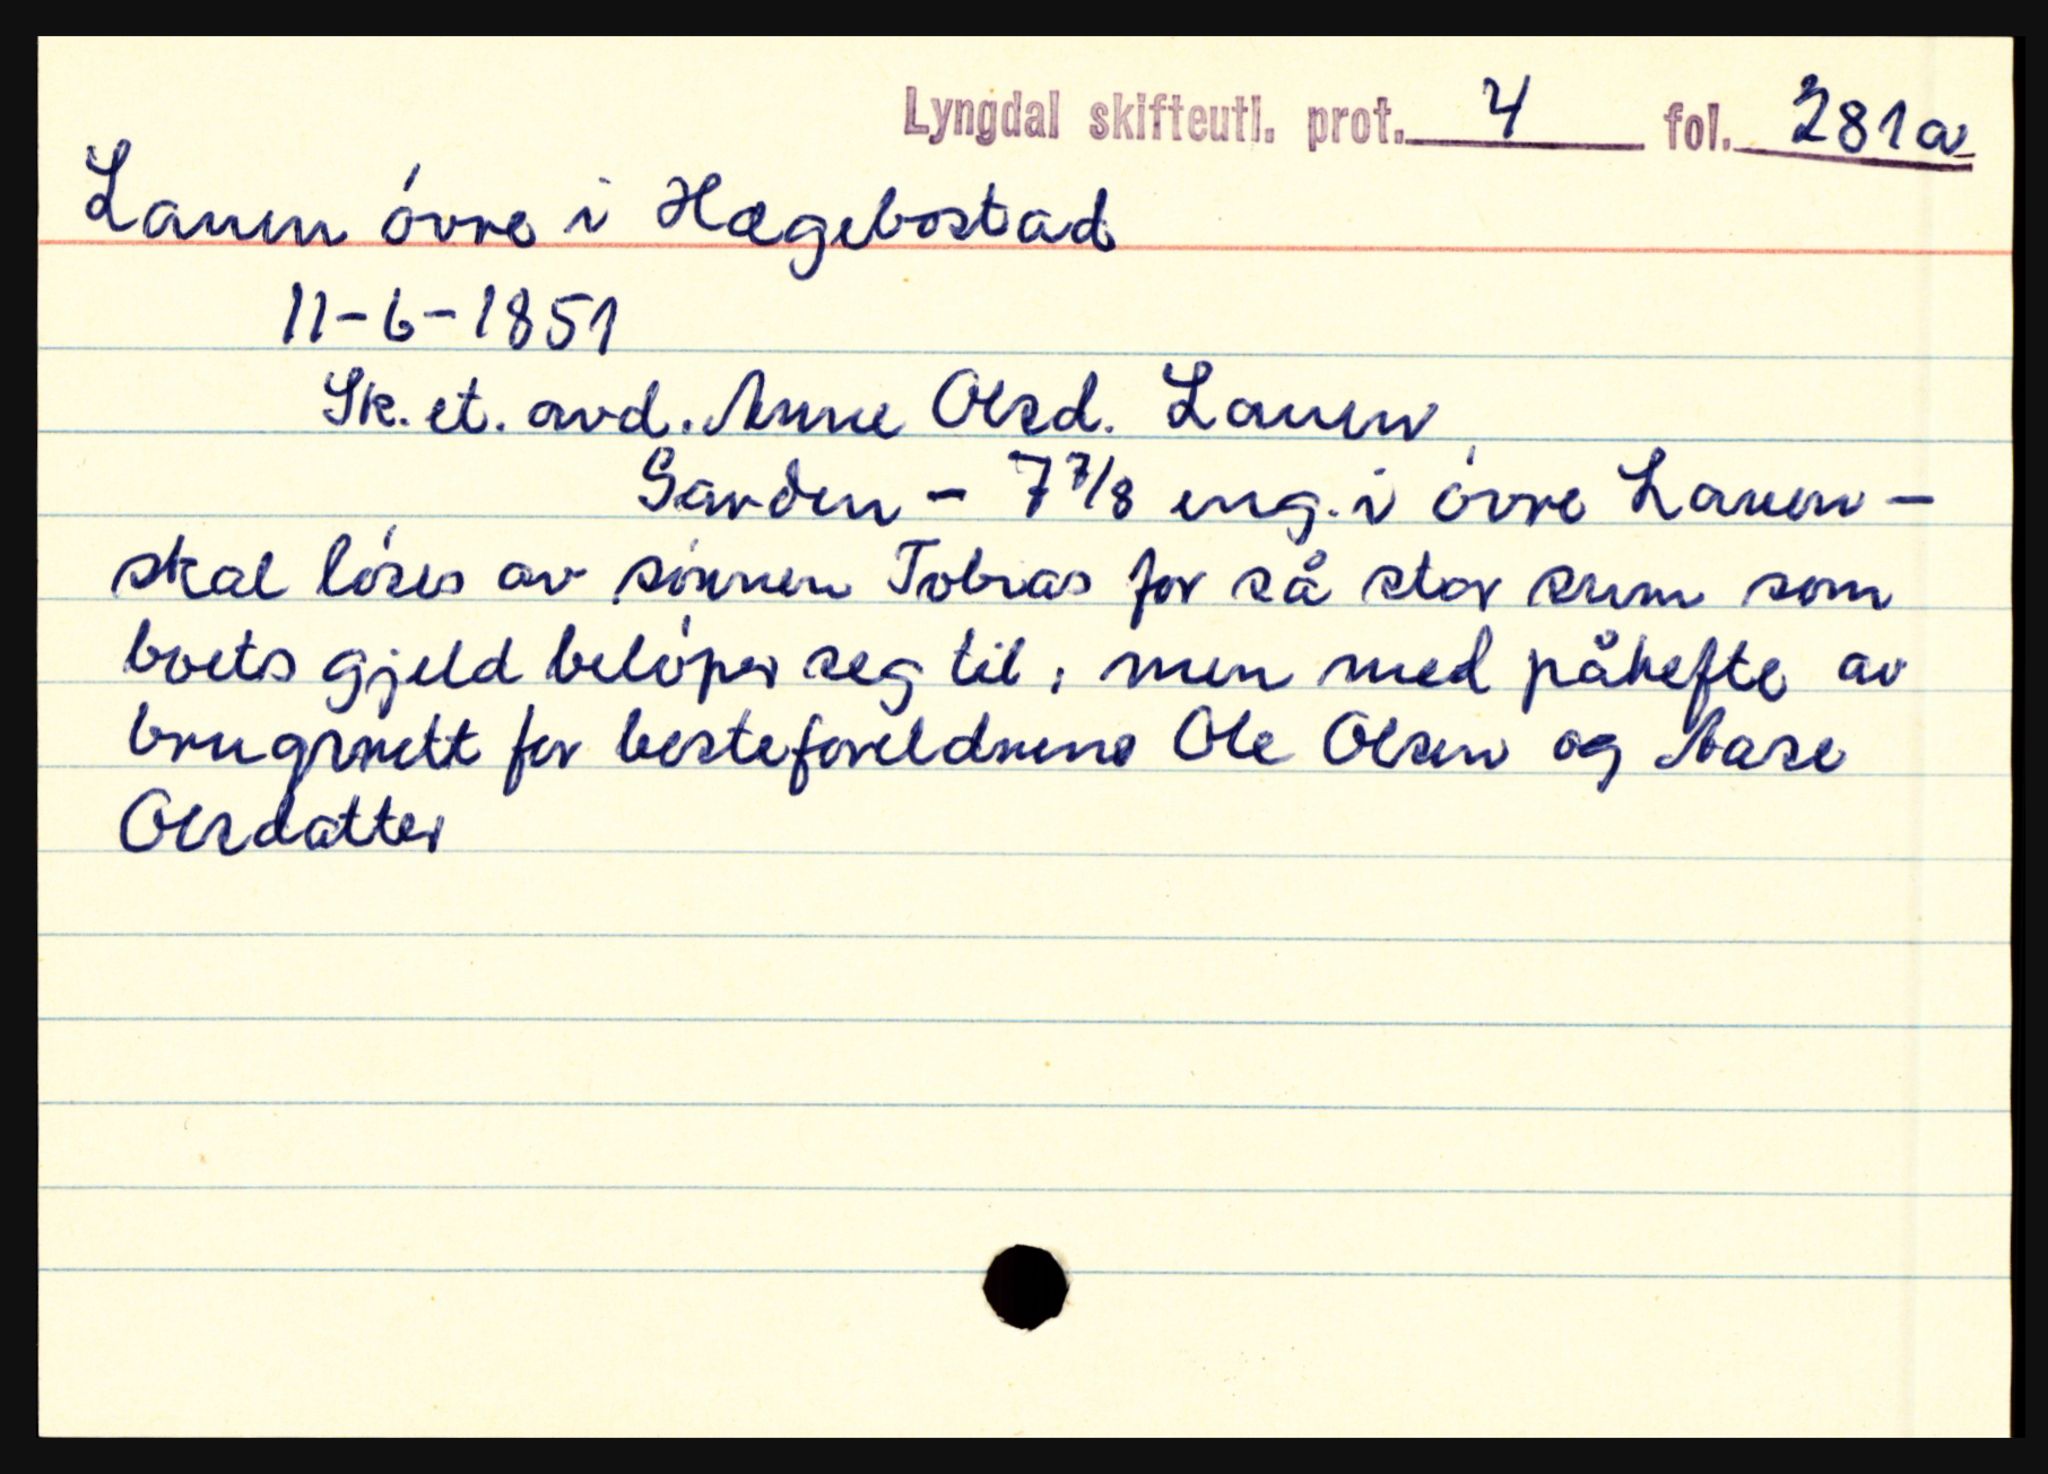 Lyngdal skifteutl. prot. 4 fol. 281a
Lauen óvre i Hægebostad
11-6-1851
Sk. et. avd. Anne Olsd. Lauen
Garden - 7 7/8 eng. i óvre Lauen -
skal lóses av sónnen Tobias for så stor sum som
boets gjeld belóper seg til, men med påhefte av
brugsrett for besteforeldrene Ole Olsen og Aase
Olsdatter